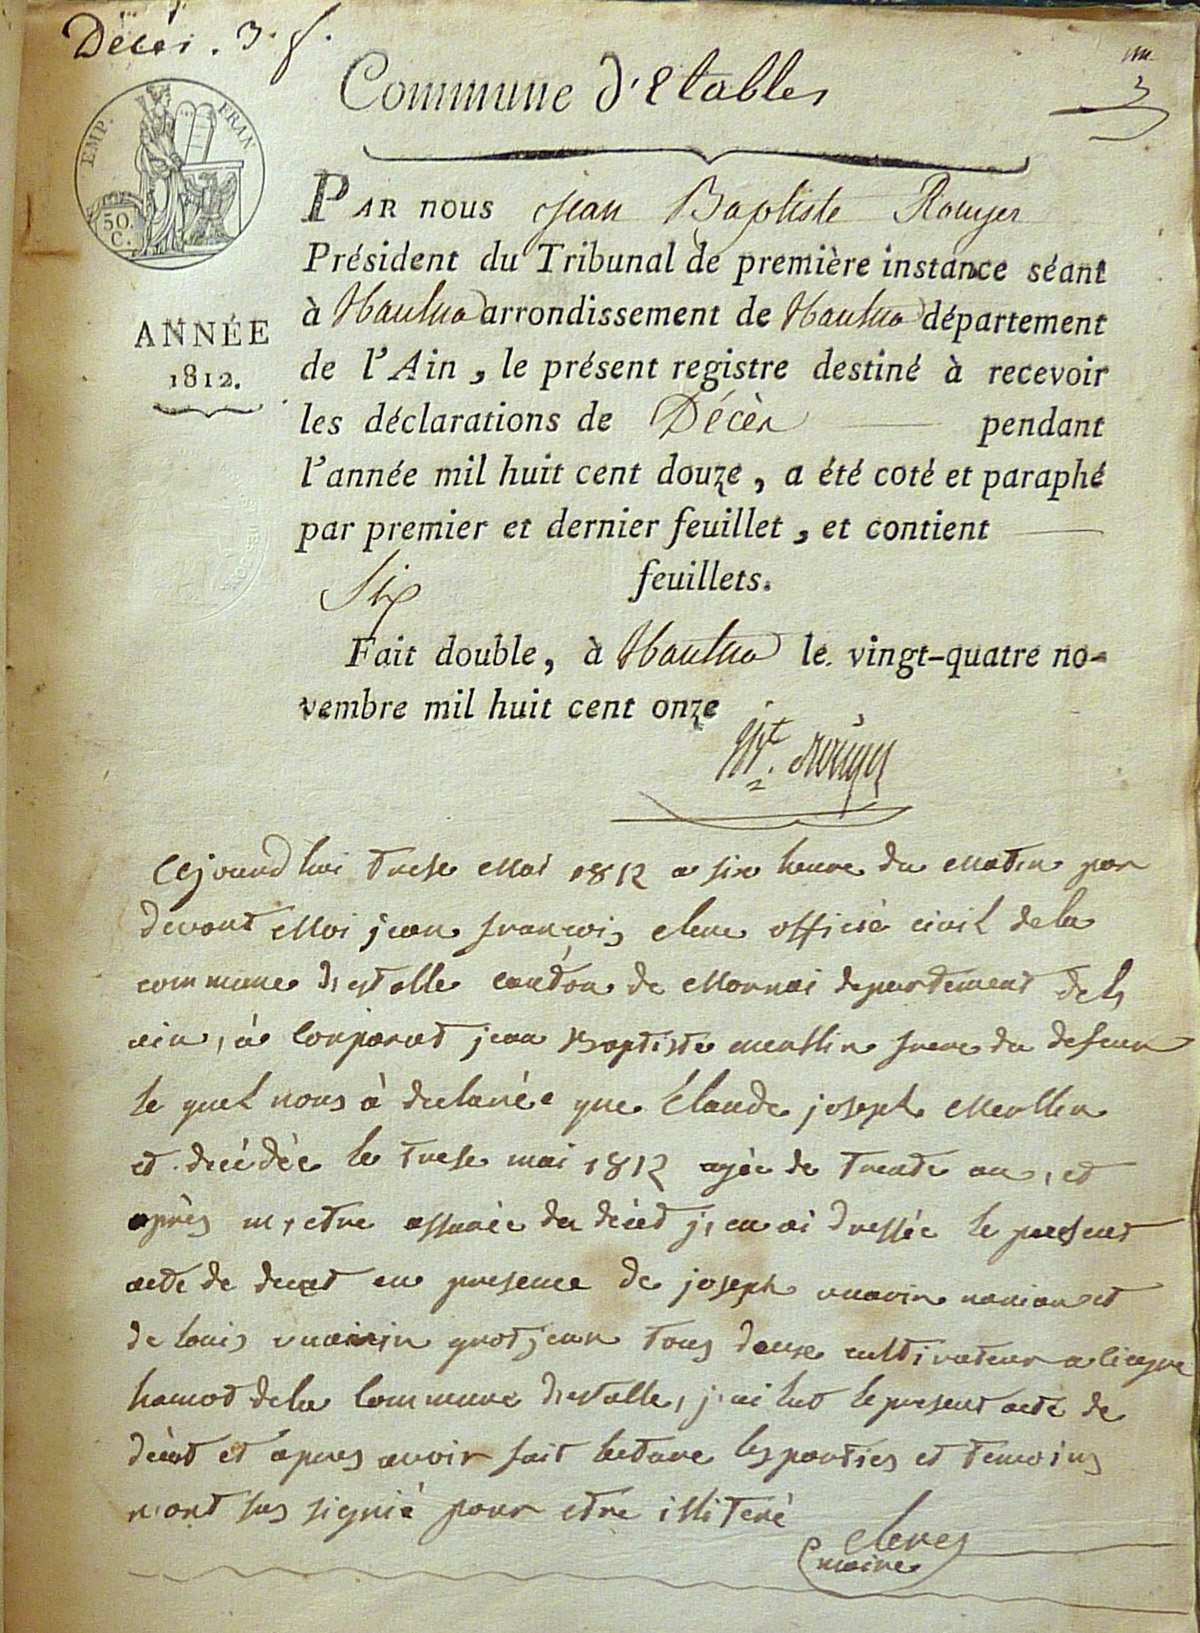 Décès. 3. f.
Commune d'Etables
3
EMP. FRAN
50. C.
ANNÉE
1812.
PAR nous Jean Baptiste Rouyer
Président du Tribunal de première instance séant
à Nantua arrondissement de Nantua département
de l'Ain, le présent registre destiné à recevoir
les déclarations de Décès pendant
l'année mil huit cent douze, a été coté et paraphé
par premier et dernier feuillet, et contient
Six feuillets.
Fait double, à Nantua le vingt-quatre no-
vembre mil huit cent onze
Bt. Rouyer
Cejourd hui trese Mai 1812 a six heure du Matin par
devant Moi jean francois clerc officié civil de la
commune d, estable canton de Mornai departement del,
ain, à Conparut jean Baptiste merllin frere du defeun
le quel nous à declarée que Claude joseph Merllin
et décédée le trese mai 1812 agée de trente an, et
après m, etre assurée du décet j, en ai dressée le present
acte de decet en presence de joseph vuarin et
de louis vuairin grosjean tous deux cultivateur a
hamot de la Commune d, estalle, j, ai lut le present acte de
décet et apres avoir fait lecture les parties et temoins
n, ont sus signié pour etre illiteré
clerc
maire